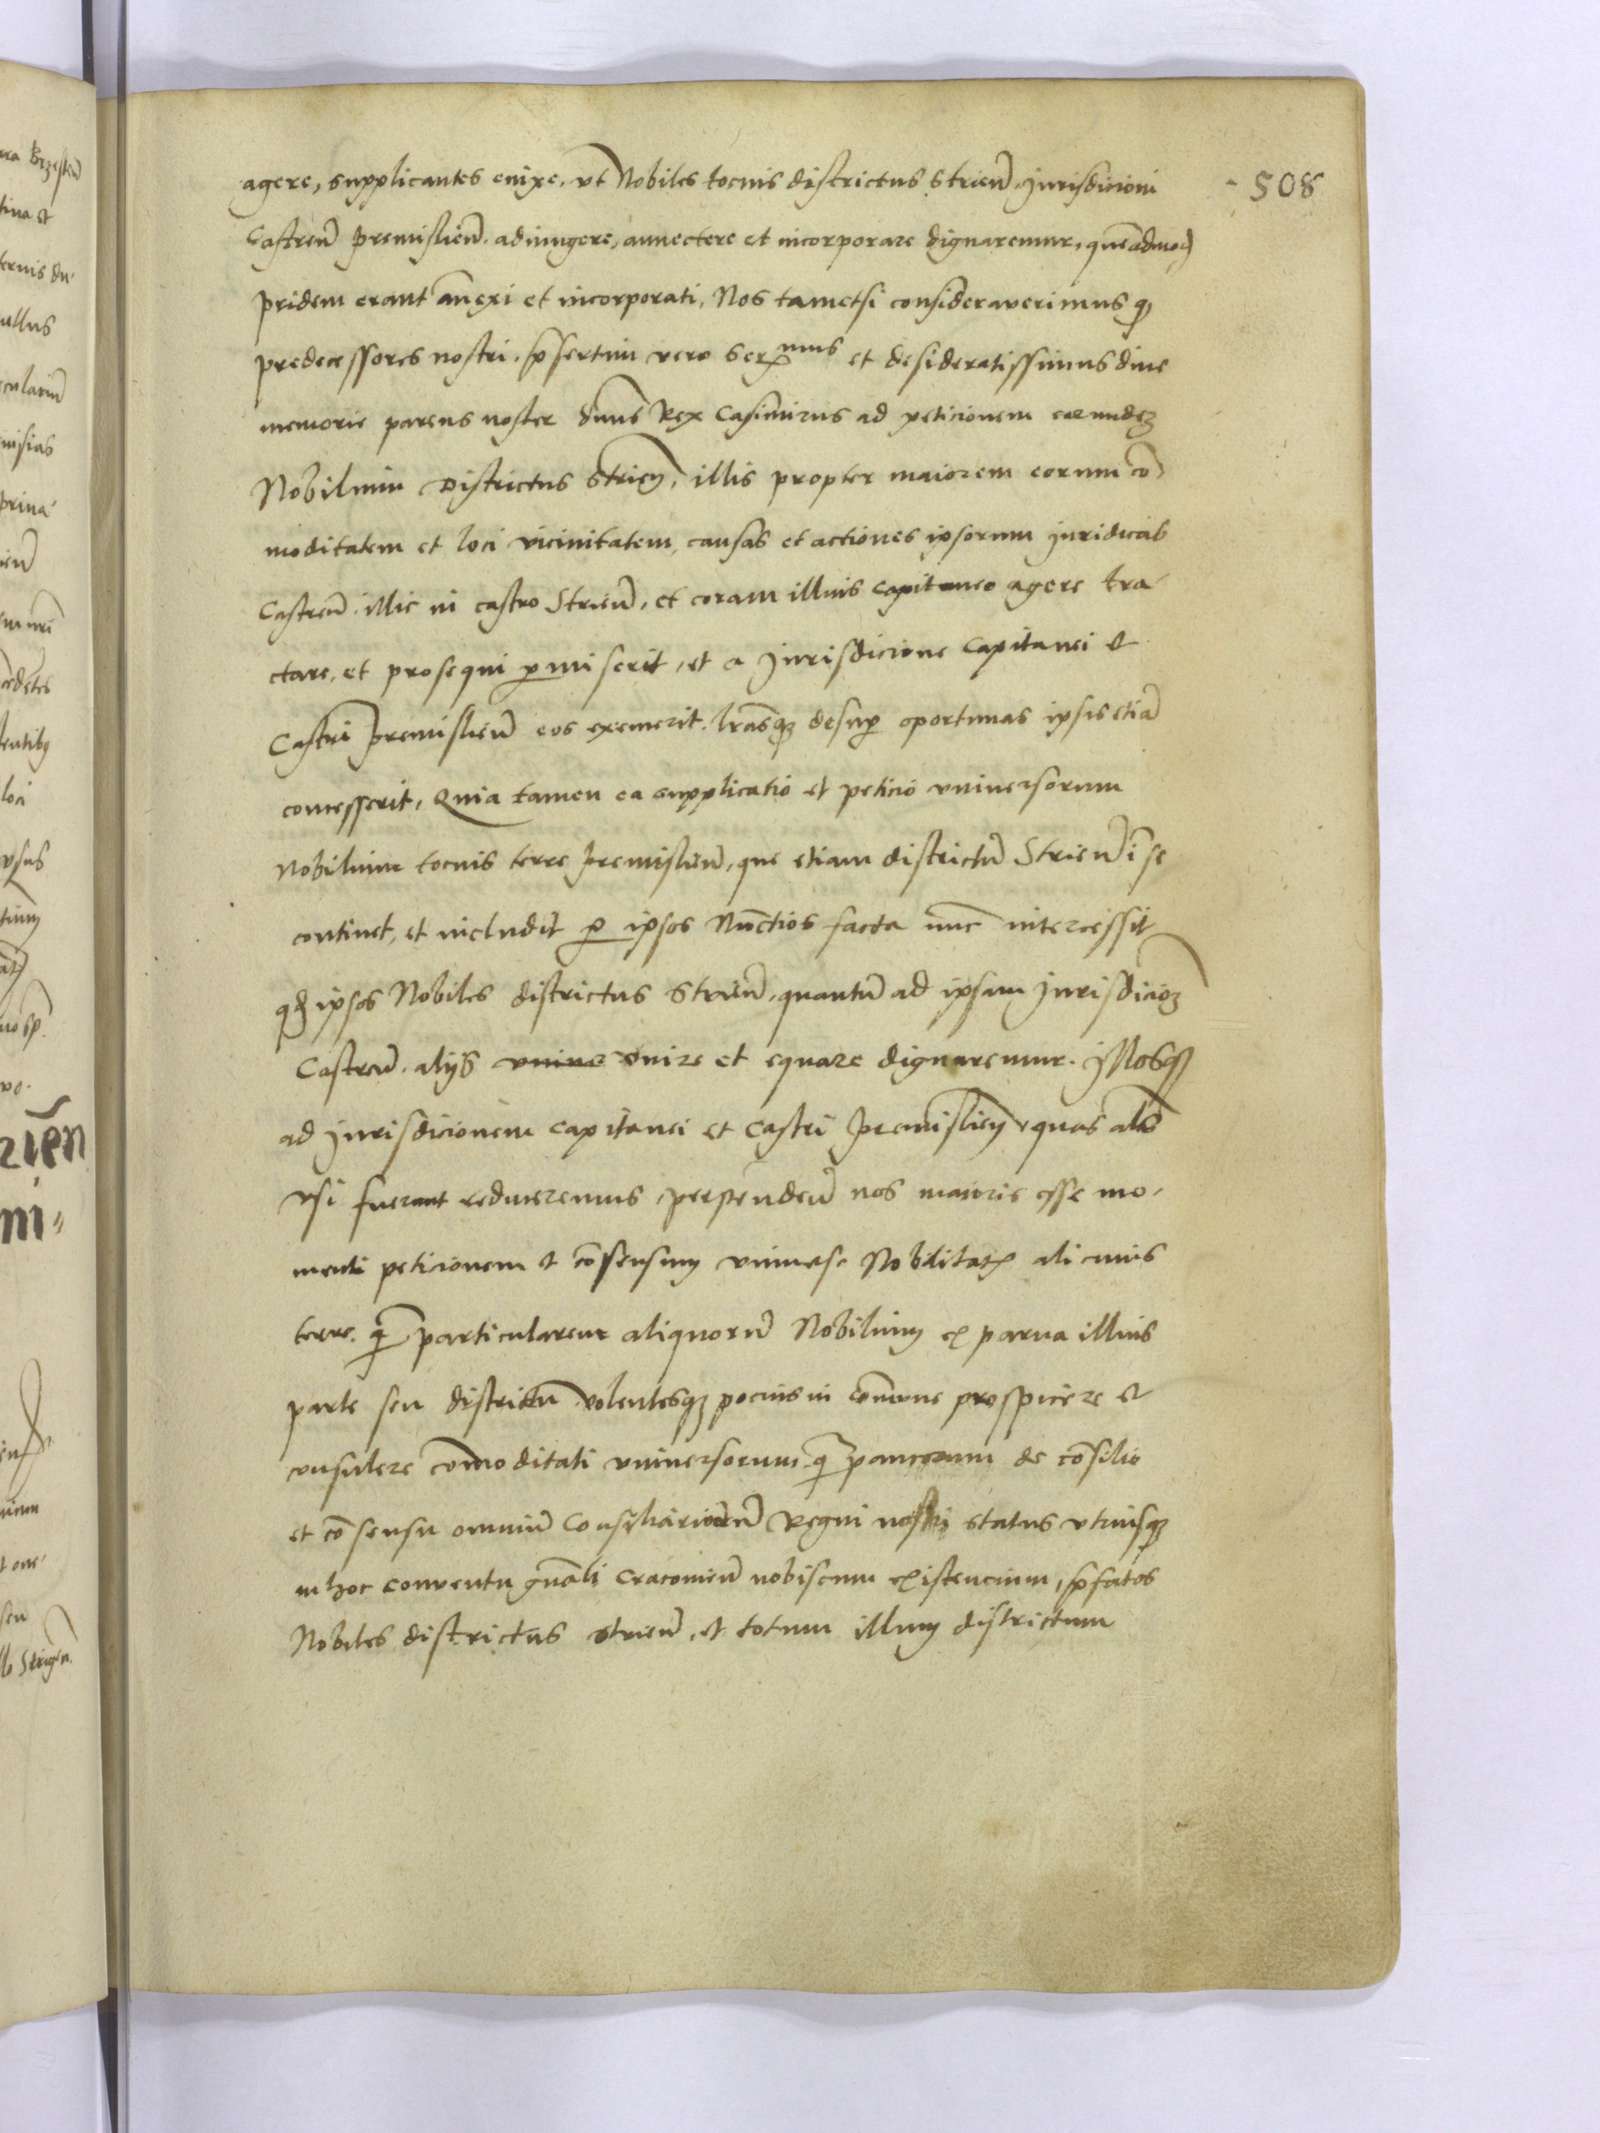 508
agere, supplicantes enixe, vt Nobiles tocius districtus Strień. Jurisdicioni
Castreń Premislień. adiungere, annectere et incorporare dignaremur, quēadmod
pridem erant añexi et incorporati, Nos tametsi consideraverimus q
predecessores nostri, psertim vero Serᵐᵘˢ et desideratissimus dive
memorie parens noster dñus Rex Casimirus ad peticionem eorundeʒ
Nobilium Districtus Strieñ, illis propter maiorem eorum cō
moditatem et loci vicinitatem, causas et actiones ipsorum Juridicas
Castreń. illic in castro Strień, et coram illius capitaneo agere tra
ctare, et prosequi pmiserit, et a Jurisdicione Capitanei et
Castri Premislień eos exemerit. lrasqʒ desup oportunas ipsis etiā
concesserit, Quia tamen ea supplicatio et peticio vniversorum
Nobilium tocius terre Premislień, que etiam districtū Strień ī se
continet, et includit p ipsos Nūctios facta nuc intercessit
qd ipsos Nobiles districtus Strień, quantū ad ipsam Jurisdicioʒ
Castreń. alijs vnire et equare dignaremur. Illosqʒ
ad Jurisdicionem capitanei et Castri Premislień quas als
vsi fuerant reduceremus, perpendeń nos maioris esse mo-
menti peticionem et cōsensum vniverse Nobilitatis alicuius
terre. q̄ particularem aliquorū Nobilium ex parua illius
parte seu districtu volentesqʒ pocius in cōmune prospicere et
consulere cōmoditati vniversorum, q̄ paucorum de cōsilio
et cōsensu omniū Consiliariorū Regni nostri status vtriusqʒ
in hoc conventu gnāli Cracovień nobiscum existencium, pfatos
Nobiles districtus Strień, et totum illum districtum